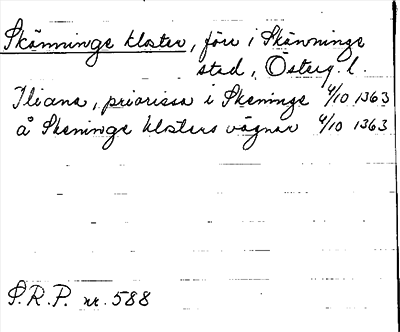 Skänninge kloster, förr i Skänninge
stad, Österg. l.
Iliana, priorissa i Skeninge 4/10 1363
å Skeninge klosters vägnar 4/10 1363
S.R.P. nr. 588